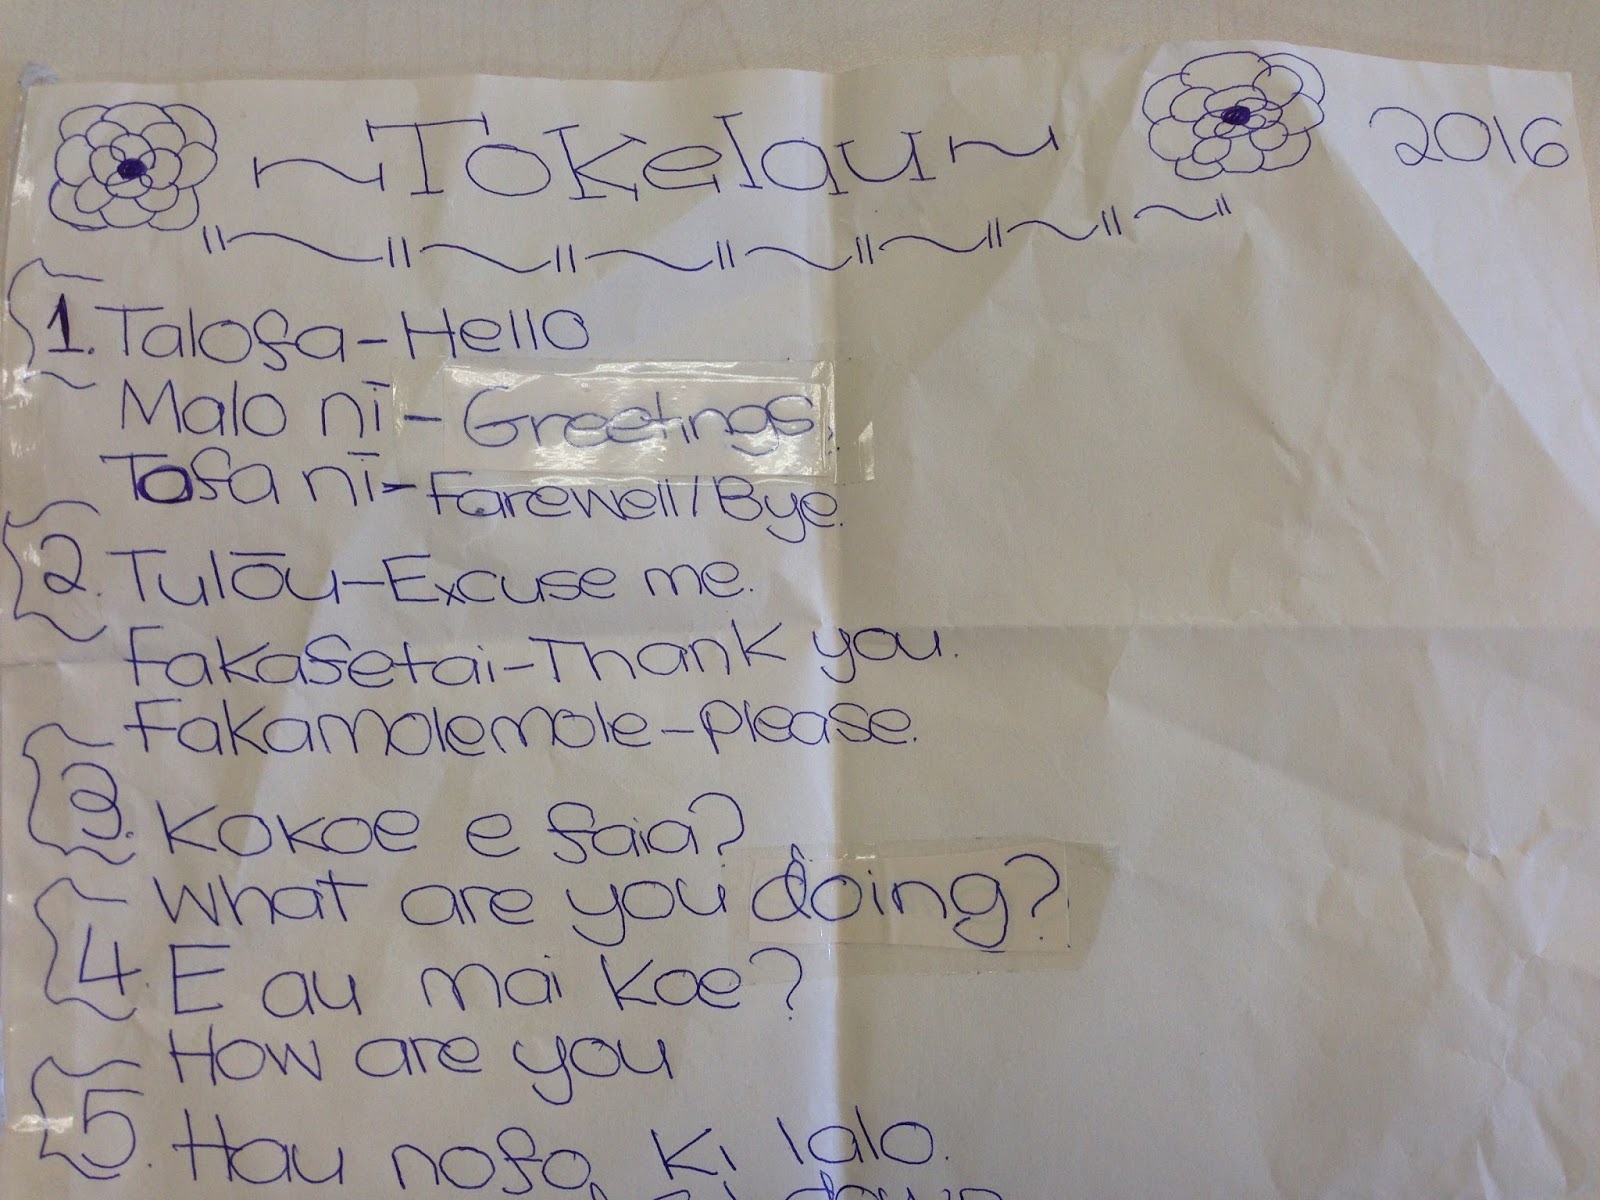 ~Tokelau~ 2016
1. Talofa-Hello
Malo nī - Greetings.
Tofa nī-Farewell/Bye.
2. Tulōu-Excuse me.
Fakafetai-Thank you.
Fakamolemole-Please.
3. Kokoe e faia?
What are you doing?
4. E au mai koe?
How are you
5. Hau nofo ki lalo.